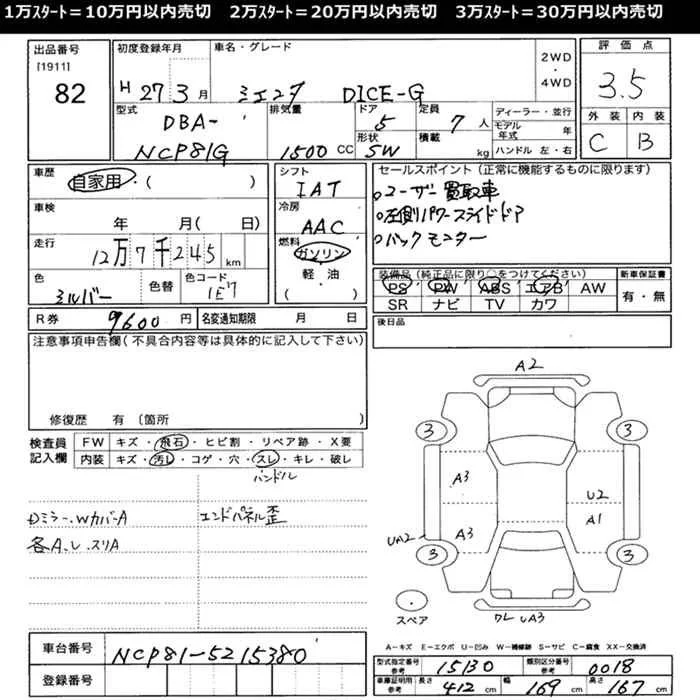 1万ｽﾀｰﾄ＝10万円以内売切　2万ｽﾀｰﾄ＝20万円以内売切　3万ｽﾀｰﾄ＝30万円以内売切
出品番号
[1911]
82
初度登録年月
H 27 3月
車名・グレード
シエンタ DICE-G
2WD
・
4WD
評価点
3.5
外装 内装
C B
型式
DBA-
NCP81G
排気量
1500 CC
ドア
5
形状
SW
定員
7人
積載
kg
ディーラー・並行
モデル年式 年
ハンドル 左・右
車歴
自家用・( )
車検
年 月( 日)
走行
12万7千245km
色
シルバー
色替
色コード
1E7
シフト
IAT
冷房
AAC
燃料
ガソリン
軽・油
( )
セールスポイント(正常に機能するものに限ります)
○ユーザー買取車
○左側パワースライドドア
○バックモニター
装備品(純正品に限り○をつけてください)
PS PW ABS エアB AW
SR ナビ TV カワ
新車保証書
有・無
R券 9600円 名変通知期限 月 日
後日品
注意事項申告欄(不具合内容等は具体的に記入して下さい)
修復歴 有 (箇所 )
検査員記入欄
FW キズ・飛石・ヒビ割・リペア跡・X要
内装 キズ・汚レ・コゲ・穴・スレ・キレ・破レ
ハンドル
Dミラー、WカバーA
各A、L、スリA
エンドパネル歪
A2
3 3
A3
U2
A3
A1
UA2
3 3
スペア
ワレ UA3
A－キズ E－エクボ U－凹み W－補修跡 S－サビ C－腐食 XX－交換済
車台番号 NCP81-5215380
登録番号
型式指定番号 参考 15130 類別区分番号 参考 0018
車庫証明用 参考 長さ 412 cm 幅 169 cm 高さ 167 cm